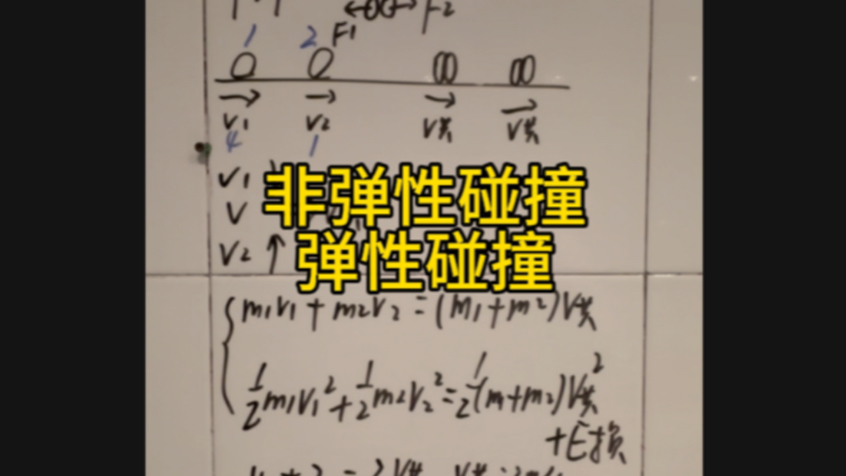 F1 F2
1 2
V1 V2 V共 V共
4 1
V1
非弹性碰撞
V
弹性碰撞
V2 ↑
m1v1 + m2v2 = (m1+m2)V共
1/2 m1v1² + 1/2 m2v2² = 1/2 (m1+m2)V共²
+E损